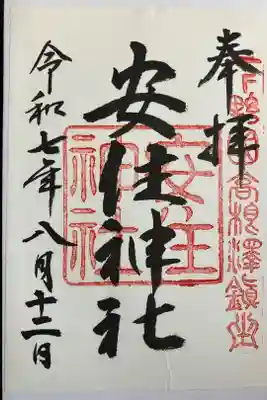 奉拝
下野国高根澤鎮座
安住神社
安住神社
令和七年八月十二日